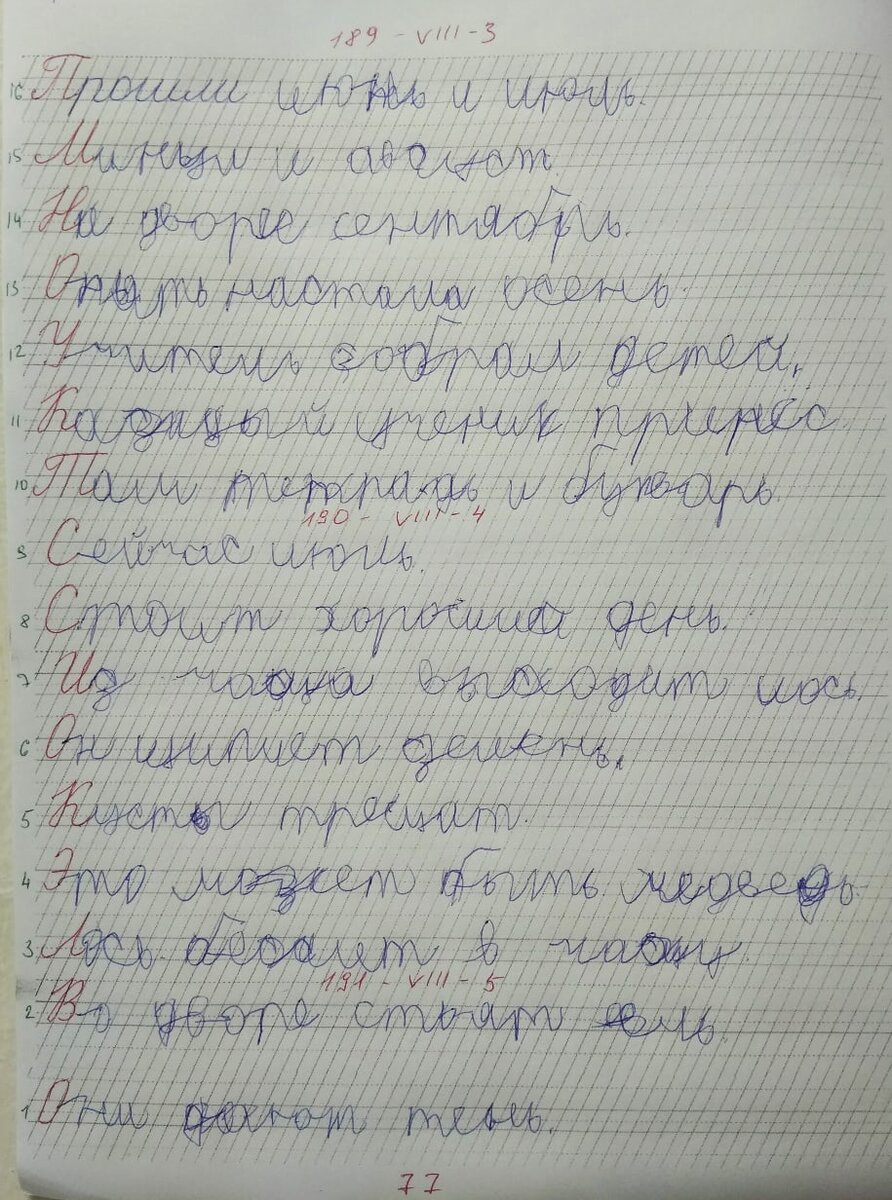 189 - VIII - 3
16 Прошли июнь и июль.
15 Минул и август.
14 На дворе сентябрь.
13 Опять настала осень.
12 Учитель собрал детей.
11 Каждый ученик принёс
10 Там тетрадь и букварь
190 - VIII - 4
9 Сейчас июль.
8 Стоит хороший день.
7 Из чащи выходит лось.
6 Он щиплет зелень.
5 Кусты трещат.
4 Это может быть медведь.
3 Лось бежит в чащу.
191 - VIII - 5
2 Во дворе стоят ель.
1 Они дают тень.
77